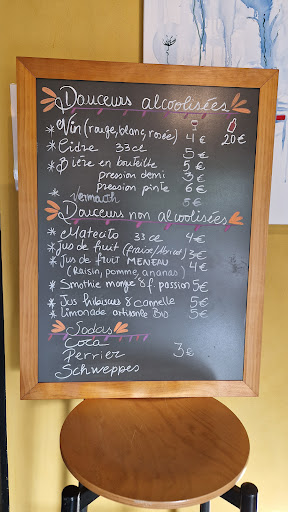 Douceurs alcoolisées
* Vin (rouge, blanc, rosée) 4€ 20€
* Cidre 33cl 5€
* Bière en bouteille 5€
pression demi 3€
pression pinte 6€
* Vermouth 5€
Douceurs non alcoolisées
* Matecito 33cl 4€
* Jus de fruit (fraise/Abricot) 3€
* Jus de fruit MENEAU 4€
(Raisin, pomme, ananas)
* Smothie mangue & f passion 5€
* Jus hibiscus & cannelle 5€
* Limonade artisanale Bio 5€
Sodas
Coca
Perrier 3€
Schweppes